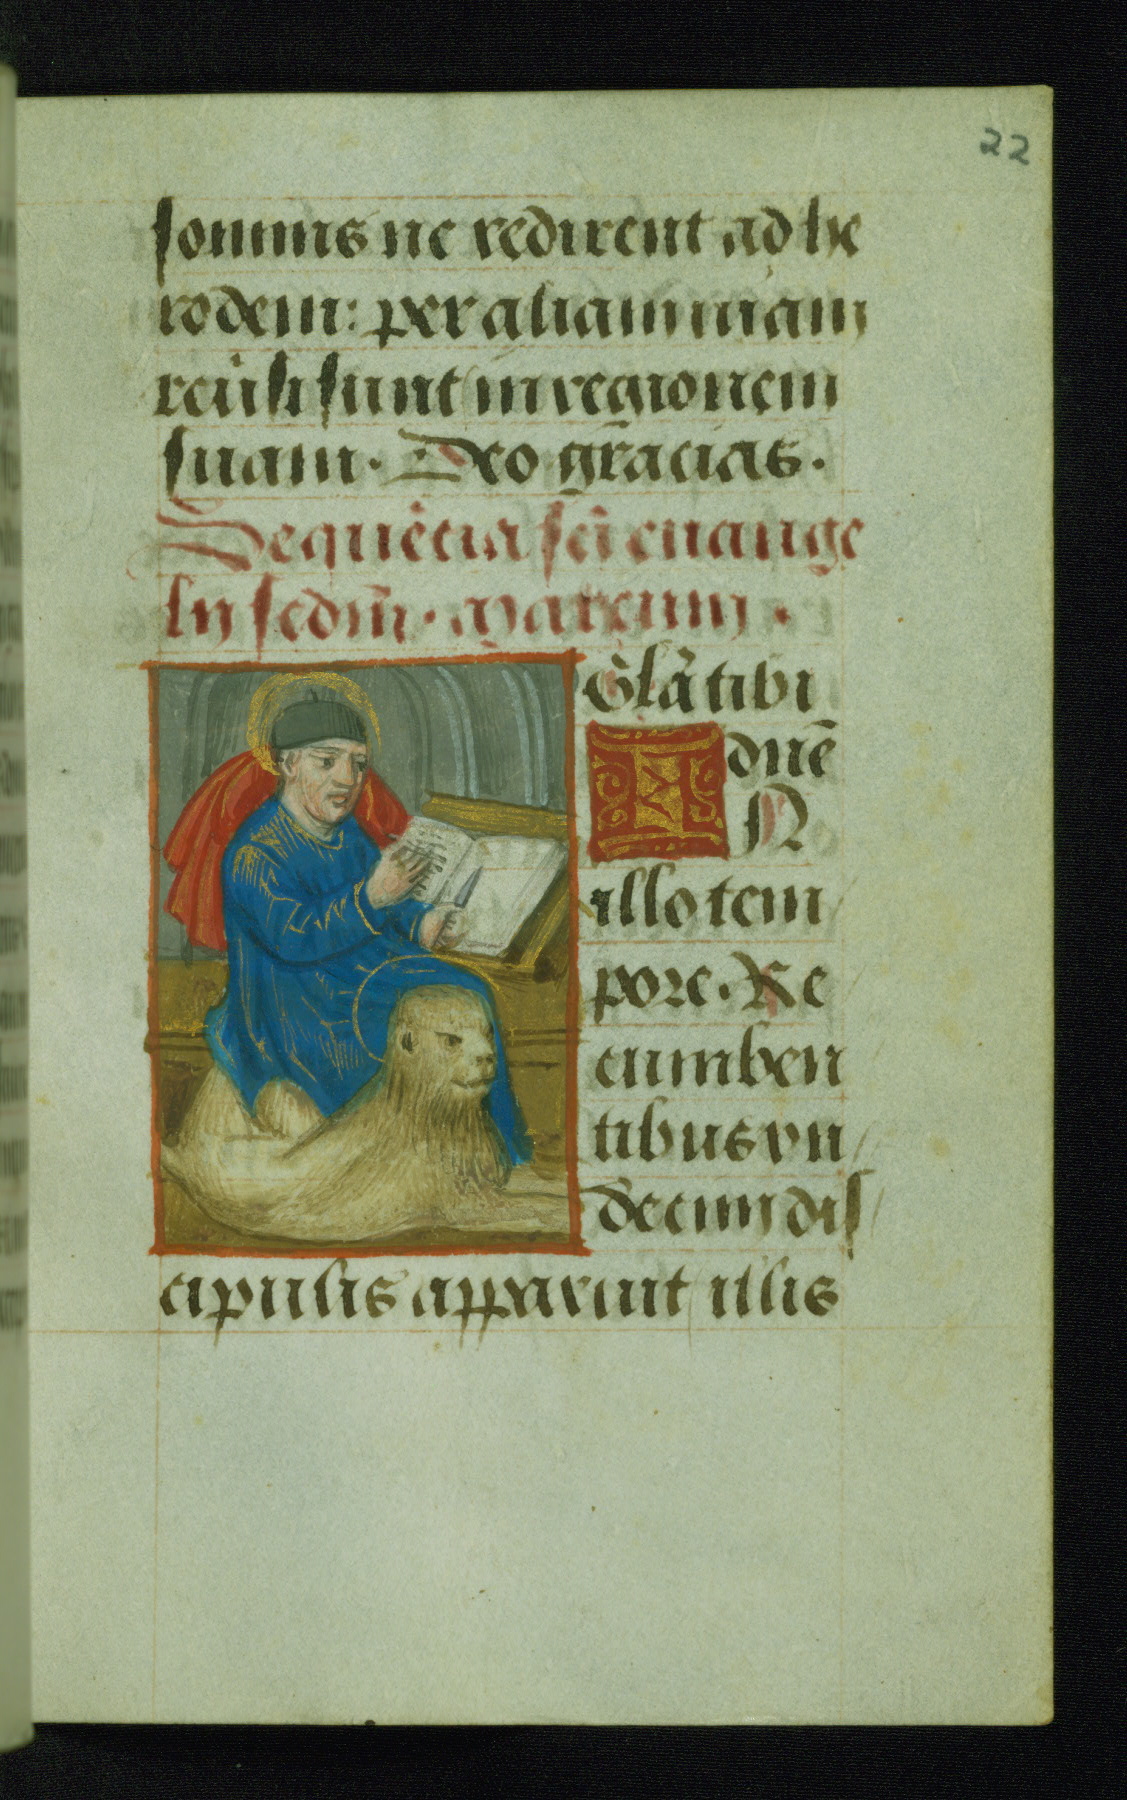 22
somnis ne redirent ad he
rodem: per aliam uiam
reũsi sunt in regionem
suam. Deo grãcias.
Sequẽtia sc̃i euange
lij sedm̃. Marcum.
Glã tibi
dñe
IN
illo tem
pore. Re
cumben
tibus vn
decim dis
cipulis apparuit illis